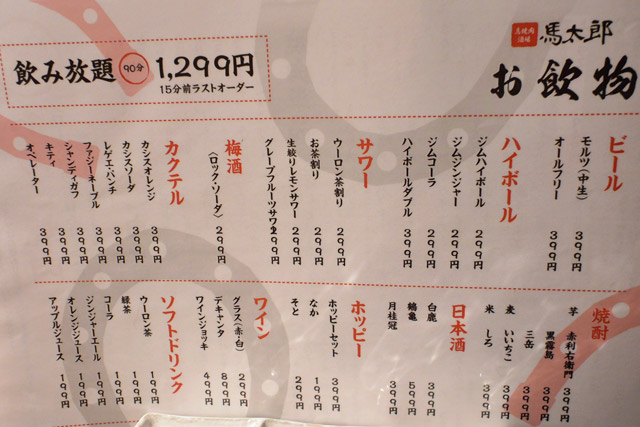 鳥焼肉酒場
馬太郎
お飲物
飲み放題 90分 1,299円
15分前ラストオーダー
ビール
モルツ（中生） 399円
オールフリー 399円
ハイボール
ジムハイボール 299円
ジムジンジャー 299円
ジムコーラ 299円
ハイボールダブル 399円
サワー
ウーロン茶割り 299円
お茶割り 299円
生絞りレモンサワー 299円
グレープフルーツサワー 299円
梅酒
（ロック・ソーダ） 299円
カクテル
カシスオレンジ 399円
カシスソーダ 399円
レゲエ・パンチ 399円
ファジーネーブル 399円
シャンディガフ 399円
キティ 399円
オペレーター 399円
焼酎
芋 赤利右衛門 399円
黒霧島 399円
三岳 399円
麦 いいちこ 399円
米 しろ 399円
日本酒
白鹿 399円
鶴亀 599円
月桂冠 399円
ホッピー
ホッピーセット 399円
なか 199円
そと 299円
ワイン
グラス（赤・白） 299円
デキャンタ 899円
ワインジョッキ 499円
ソフトドリンク
ウーロン茶 199円
緑茶 199円
コーラ 199円
ジンジャーエール 199円
オレンジジュース 199円
アップルジュース 199円